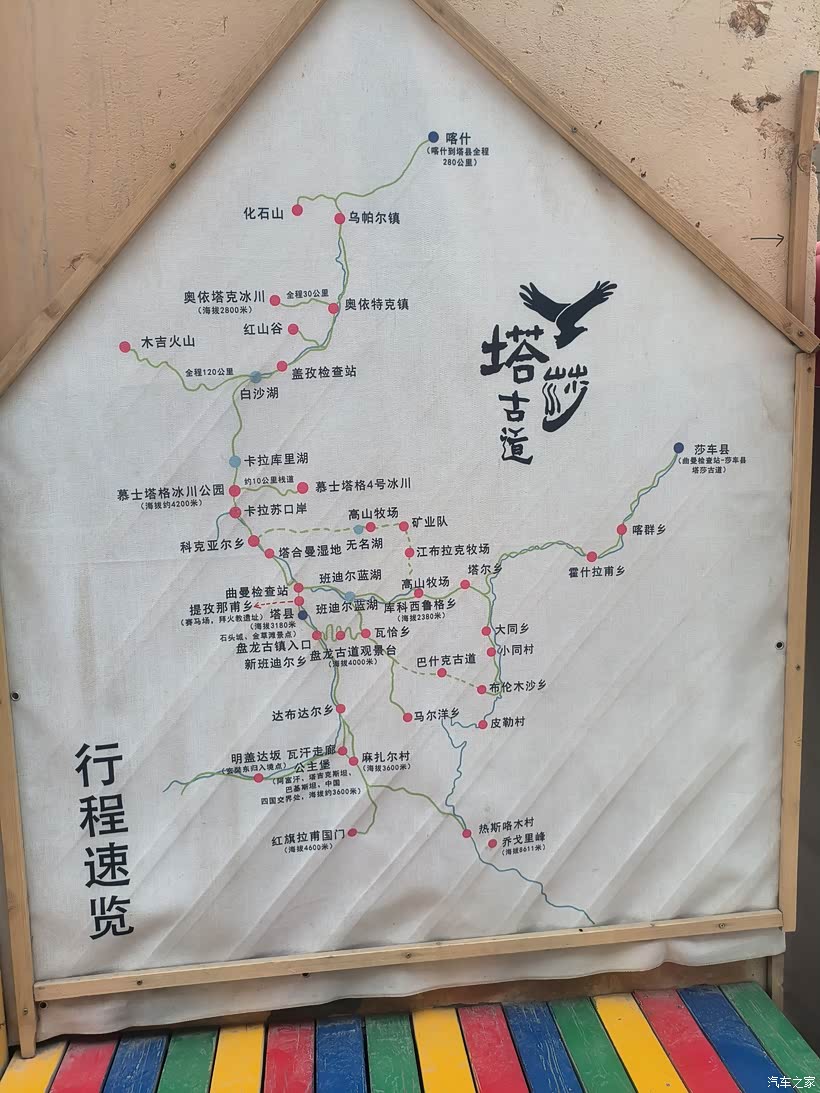 喀什
(喀什到塔县全程
280公里)
化石山
乌帕尔镇
奥依塔克冰川
(海拔2800米)
全程30公里
奥依特克镇
红山谷
木吉火山
全程120公里
盖孜检查站
白沙湖
塔莎
古道
莎车县
(曲曼检查站-莎车县
塔莎古道)
卡拉库里湖
慕士塔格冰川公园
(海拔约4200米)
约10公里栈道
慕士塔格4号冰川
卡拉苏口岸
高山牧场
矿业队
喀群乡
科克亚尔乡
塔合曼湿地
无名湖
江布拉克牧场
霍什拉甫乡
曲曼检查站
班迪尔蓝湖
高山牧场
塔尔乡
提孜那甫乡
(赛马场，拜火教遗址)
塔县
(海拔3180米
石头城、金草滩景点)
班迪尔蓝湖
库科西鲁格乡
(海拔2380米)
盘龙古镇入口
盘龙古道观景台
(海拔4000米)
瓦恰乡
大同乡
小同村
新班迪尔乡
巴什克古道
布伦木沙乡
达布达尔乡
马尔洋乡
皮勒村
明盖达坂
(玄奘东归入境点)
瓦汗走廊
公主堡
(阿富汗、塔吉克斯坦、
巴基斯坦、中国
四国交界处，海拔约3600米)
麻扎尔村
(海拔3600米)
红旗拉甫国门
(海拔4600米)
热斯喀木村
乔戈里峰
(海拔8611米)
行程速览
汽车之家